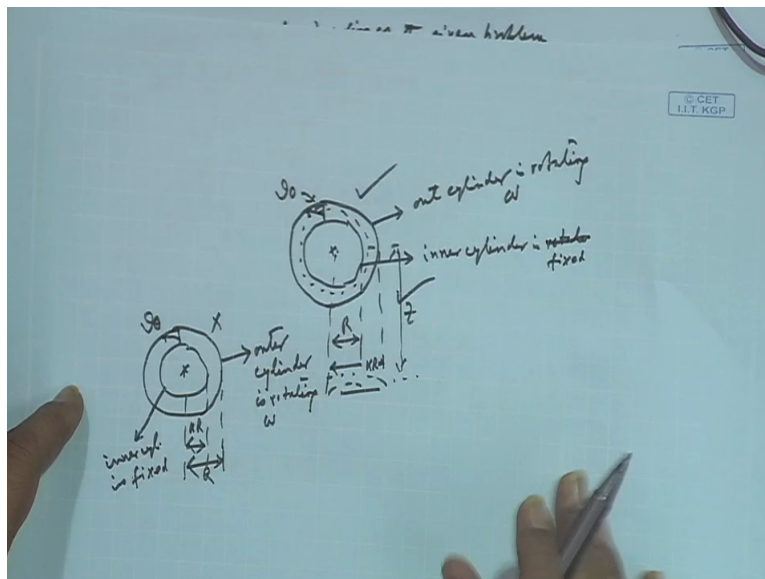 given problem
© CET
I.I.T. KGP
outer cylinder is rotating
ω
inner cylinder is
fixed
R
KR
z
x
outer
cylinder
is rotating
ω
inner cyl.
is fixed
KR
R